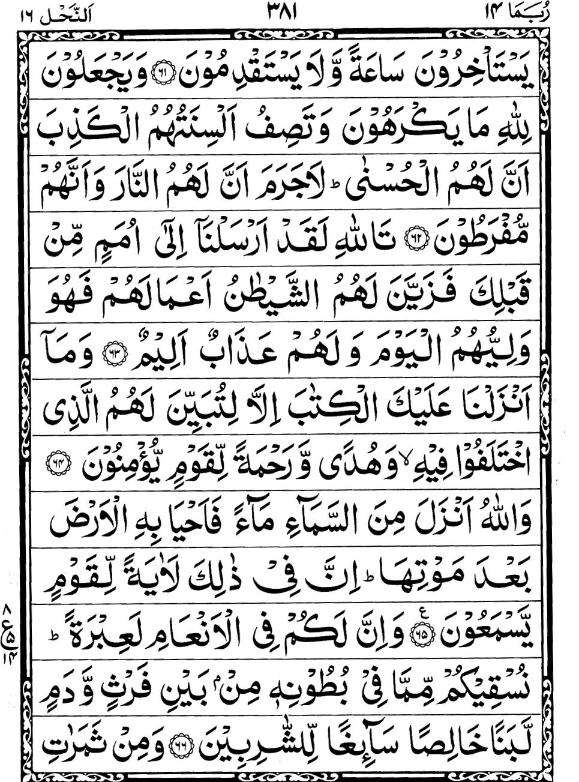 رُبَمَا ١٤ ٣٨١ اَلنَّحْل ١٦
يَسْتَاْخِرُوْنَ سَاعَةً وَّلَا يَسْتَقْدِمُوْنَ ﴿۶۱﴾ وَيَجْعَلُوْنَ
لِلّٰهِ مَا يَكْرَهُوْنَ وَتَصِفُ اَلْسِنَتُهُمُ الْكَذِبَ
اَنَّ لَهُمُ الْحُسْنٰى ؕ لَاجَرَمَ اَنَّ لَهُمُ النَّارَ وَاَنَّهُمْ
مُّفْرَطُوْنَ ﴿۶۲﴾ تَاللّٰهِ لَقَدْ اَرْسَلْنَاۤ اِلٰۤى اُمَمٍ مِّنْ
قَبْلِكَ فَزَيَّنَ لَهُمُ الشَّيْطٰنُ اَعْمَالَهُمْ فَهُوَ
وَلِيُّهُمُ الْيَوْمَ وَلَهُمْ عَذَابٌ اَلِيْمٌ ﴿۶۳﴾ وَمَاۤ
اَنْزَلْنَا عَلَيْكَ الْكِتٰبَ اِلَّا لِتُبَيِّنَ لَهُمُ الَّذِى
اخْتَلَفُوْا فِيْهِ ۙ وَهُدًى وَّرَحْمَةً لِّقَوْمٍ يُّؤْمِنُوْنَ ﴿۶۴﴾
وَاللّٰهُ اَنْزَلَ مِنَ السَّمَآءِ مَآءً فَاَحْيَا بِهِ الْاَرْضَ
بَعْدَ مَوْتِهَا ؕ اِنَّ فِىْ ذٰلِكَ لَاٰيَةً لِّقَوْمٍ
يَّسْمَعُوْنَ ﴿۶۵﴾ ع وَاِنَّ لَكُمْ فِى الْاَنْعَامِ لَعِبْرَةً ؕ
۸ ع ۵ ١٤
نُسْقِيْكُمْ مِّمَّا فِىْ بُطُوْنِهٖ مِنْۢ بَيْنِ فَرْثٍ وَّدَمٍ
لَّبَنًا خَالِصًا سَآئِغًا لِّلشّٰرِبِيْنَ ﴿۶۶﴾ وَمِنْ ثَمَرٰتِ